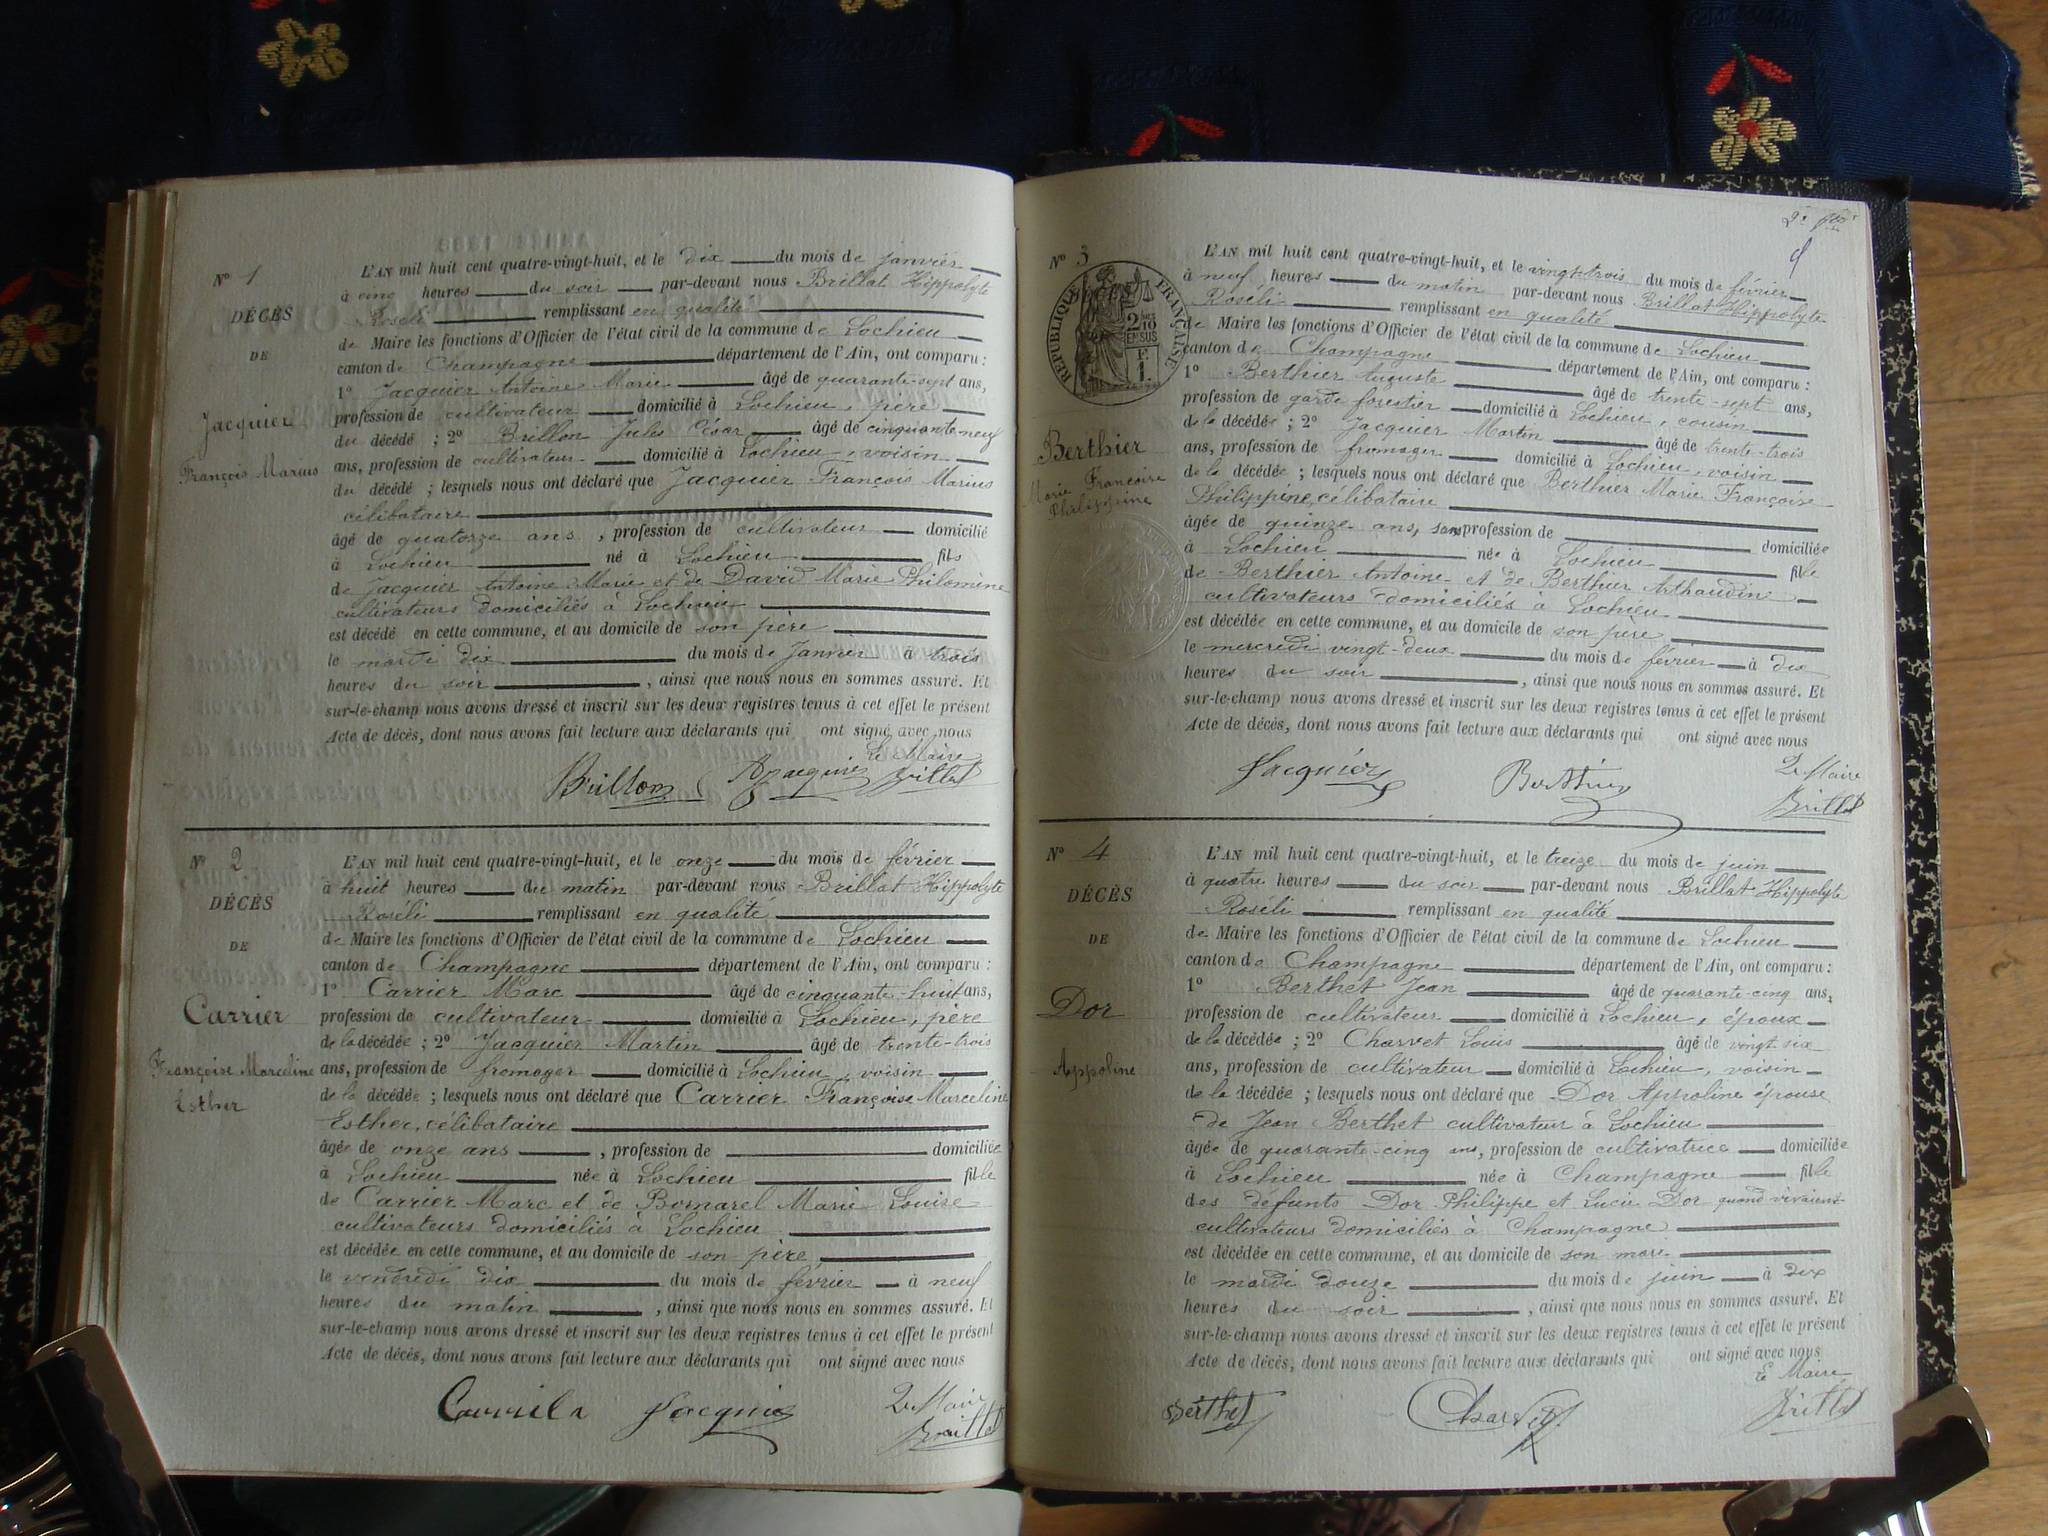 Nº 1
DÉCÈS
DE
Jacquier
François Marius
L'AN mil huit cent quatre-vingt-huit, et le dix du mois de janvier
à cinq heures du soir par-devant nous Brillat Hippolyte
Roséli remplissant en qualité
de Maire les fonctions d'Officier de l'état civil de la commune de Lochieu
canton de Champagne département de l'Ain, ont comparu :
1º Jacquier Antoine Marie âgé de quarante-sept ans,
profession de cultivateur domicilié à Lochieu, père
du décédé ; 2º Brillon Jules César âgé de cinquante neuf
ans, profession de cultivateur domicilié à Lochieu, voisin
du décédé ; lesquels nous ont déclaré que Jacquier François Marius
célibataire
âgé de quatorze ans, profession de cultivateur domicilié
à Lochieu né à Lochieu fils
de Jacquier Antoine Marie et de David Marie Philomène
cultivateurs domiciliés à Lochieu
est décédé en cette commune, et au domicile de son père
le mardi dix du mois de Janvier à trois
heures du soir, ainsi que nous nous en sommes assuré. Et
sur-le-champ nous avons dressé et inscrit sur les deux registres tenus à cet effet le présent
Acte de décès, dont nous avons fait lecture aux déclarants qui ont signé avec nous
Le Maire
Brillon A Jacquier Brillat
Nº 2
DÉCÈS
DE
Carrier
Françoise Marceline
Esther
L'AN mil huit cent quatre-vingt-huit, et le onze du mois de février
à huit heures du matin par-devant nous Brillat Hippolyte
Roséli remplissant en qualité
de Maire les fonctions d'Officier de l'état civil de la commune de Lochieu
canton de Champagne département de l'Ain, ont comparu :
1º Carrier Marc âgé de cinquante-huit ans,
profession de cultivateur domicilié à Lochieu, père
de la décédée ; 2º Jacquier Martin âgé de trente-trois
ans, profession de fromager domicilié à Lochieu, voisin
de la décédée ; lesquels nous ont déclaré que Carrier Françoise Marceline
Esther, célibataire
âgée de onze ans, profession de domiciliée
à Lochieu née à Lochieu fille
de Carrier Marc et de Bornarel Marie Louise
cultivateurs domiciliés à Lochieu
est décédée en cette commune, et au domicile de son père
le vendredi dix du mois de février à neuf
heures du matin, ainsi que nous nous en sommes assuré. Et
sur-le-champ nous avons dressé et inscrit sur les deux registres tenus à cet effet le présent
Acte de décès, dont nous avons fait lecture aux déclarants qui ont signé avec nous
Le Maire
Jacquier Brillat
Nº 3
RÉPUBLIQUE FRANÇAISE
2/10 EN SUS
F. 1.
Berthier
Marie Françoise
Philippine
L'AN mil huit cent quatre-vingt-huit, et le vingt-trois du mois de février
à neuf heures du matin par-devant nous Brillat Hippolyte
Roséli remplissant en qualité
de Maire les fonctions d'Officier de l'état civil de la commune de Lochieu
canton de Champagne département de l'Ain, ont comparu :
1º Berthier Auguste âgé de trente-sept ans,
profession de garde forestier domicilié à Lochieu, cousin
de la décédée ; 2º Jacquier Martin âgé de trente-trois
ans, profession de fromager domicilié à Lochieu, voisin
de la décédée ; lesquels nous ont déclaré que Berthier Marie Françoise
Philippine, célibataire
âgée de quinze ans, sans profession de domiciliée
à Lochieu née à Lochieu fille
de Berthier Antoine et de Berthier Arthaudine
cultivateurs domiciliés à Lochieu
est décédée en cette commune, et au domicile de son père
le mercredi vingt-deux du mois de février à dix
heures du soir, ainsi que nous nous en sommes assuré. Et
sur-le-champ nous avons dressé et inscrit sur les deux registres tenus à cet effet le présent
Acte de décès, dont nous avons fait lecture aux déclarants qui ont signé avec nous
Le Maire
Jacquier Berthier Brillat
Nº 4
DÉCÈS
DE
Dor
Appoline
L'AN mil huit cent quatre-vingt-huit, et le treize du mois de juin
à quatre heures du soir par-devant nous Brillat Hippolyte
Roséli remplissant en qualité
de Maire les fonctions d'Officier de l'état civil de la commune de Lochieu
canton de Champagne département de l'Ain, ont comparu :
1º Berthet Jean âgé de quarante-cinq ans,
profession de cultivateur domicilié à Lochieu, époux
de la décédée ; 2º Charvet Louis âgé de vingt six
ans, profession de cultivateur domicilié à Lochieu, voisin
de la décédée ; lesquels nous ont déclaré que Dor Appoline épouse
de Jean Berthet cultivateur à Lochieu
âgée de quarante-cinq ans, profession de cultivatrice domiciliée
à Lochieu née à Champagne fille
des défunts Dor Philippe et Lucie Dor quand vivaient
cultivateurs domiciliés à Champagne
est décédée en cette commune, et au domicile de son mari
le mardi douze du mois de juin à dix
heures du soir, ainsi que nous nous en sommes assuré. Et
sur-le-champ nous avons dressé et inscrit sur les deux registres tenus à cet effet le présent
Acte de décès, dont nous avons fait lecture aux déclarants qui ont signé avec nous
Le Maire
Berthet Charvet Brillat